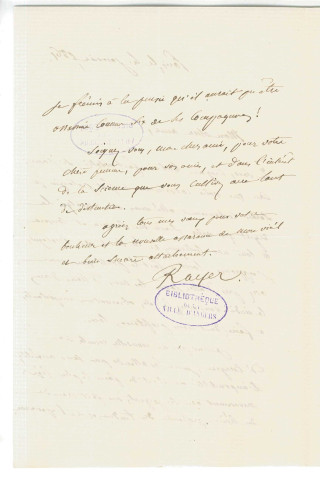 Je frémis à la pensée qu'il aurait pu être
assassiné comme de ses compagnons !
Soignez-vous, mon cher ami, pour votre
chère femme, pour vos amis, et dans l'intérêt
de la Science que vous cultivez avec tant
de distinction.
agréez tous mes vœux pour votre
bonheur et la nouvelle assurance de mon vieil
et bien sincère attachement.
Rayer.
BIBLIOTHÈQUE
DE LA
VILLE D'ANGERS